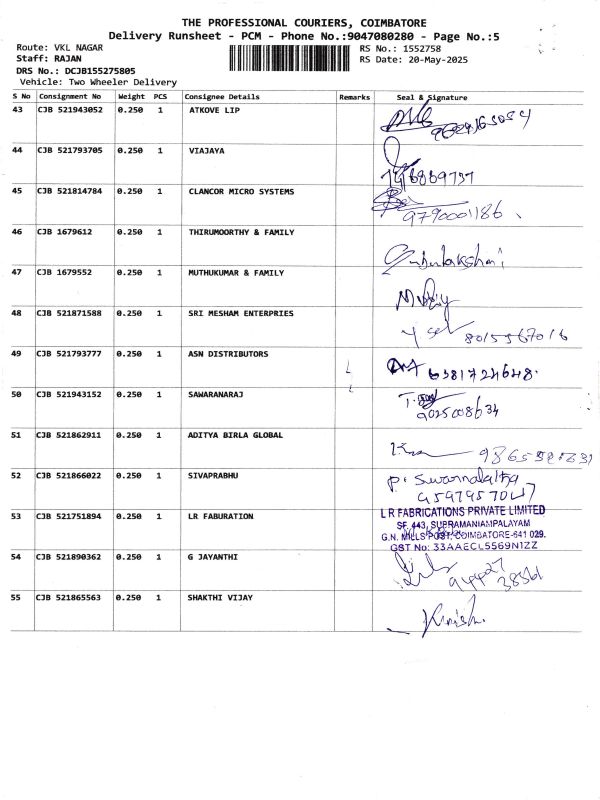 THE PROFESSIONAL COURIERS, COIMBATORE
Delivery Runsheet - PCM - Phone No.:9047080280 - Page No.:5
Route: VKL NAGAR RS No.: 1552758
Staff: RAJAN RS Date: 20-May-2025
DRS No.: DCJB155275805
Vehicle: Two Wheeler Delivery
S No Consignment No Weight PCS Consignee Details Remarks Seal & Signature
43 CJB 521943052 0.250 1 ATKOVE LIP
44 CJB 521793705 0.250 1 VIAJAYA
45 CJB 521814784 0.250 1 CLANCOR MICRO SYSTEMS
9790001186
46 CJB 1679612 0.250 1 THIRUMOORTHY & FAMILY
47 CJB 1679552 0.250 1 MUTHUKUMAR & FAMILY
48 CJB 521871588 0.250 1 SRI MESHAM ENTERPRIES
8015567016
49 CJB 521793777 0.250 1 ASN DISTRIBUTORS
6381724648.
50 CJB 521943152 0.250 1 SAWARANARAJ
9025008634
51 CJB 521862911 0.250 1 ADITYA BIRLA GLOBAL
52 CJB 521866022 0.250 1 SIVAPRABHU P. Swarnalatha
9597957047
53 CJB 521751894 0.250 1 LR FABURATION L R FABRICATIONS PRIVATE LIMITED
SF. 443, SUBRAMANIAMPALAYAM
G.N. MILLS POST, COIMBATORE-641 029.
GST No: 33AAECL5569N1ZZ
54 CJB 521890362 0.250 1 G JAYANTHI
55 CJB 521865563 0.250 1 SHAKTHI VIJAY